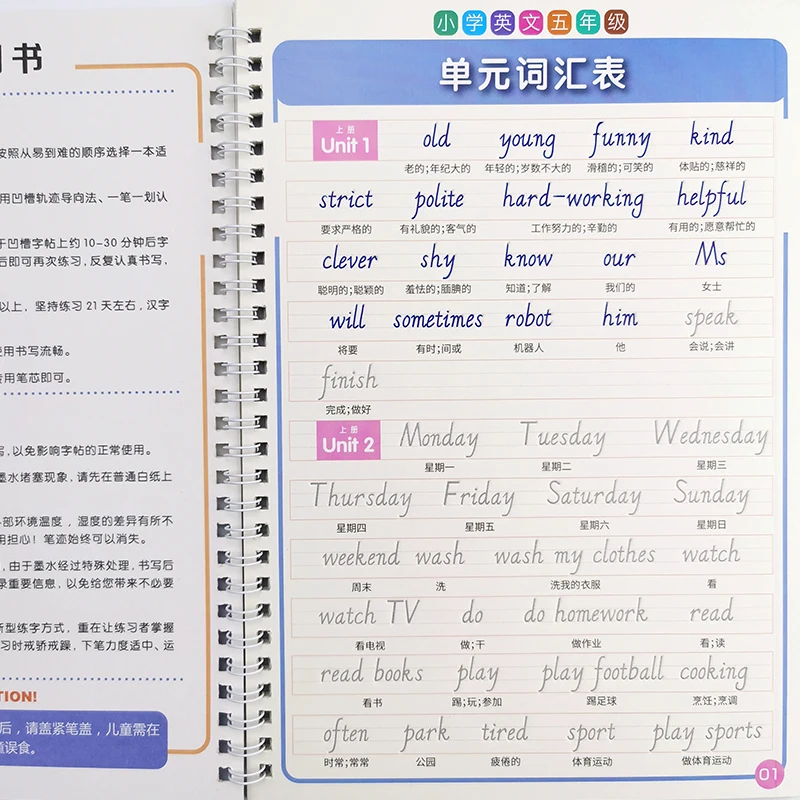 用书
按照从易到难的顺序选择一本适
用凹槽轨迹导向法、一笔一划认
于凹槽字帖上约10-30分钟后字
后即可再次练习,反复认真书写,
以上,坚持练习21天左右,汉字
使用书写流畅。
专用笔芯即可。
写,以免影响字帖的正常使用。
墨水堵塞现象,请先在普通白纸上
外部环境温度,湿度的差异有所不
用担心!笔迹始终可以消失。
,由于墨水经过特殊处理,书写后
录重要信息,以免给您带来不必要
新型练字方式,重在让练习者掌握
习时戒骄戒躁,下笔力度适中、运
TION!
后,请盖紧笔盖,儿童需在
童误食。
小学英文五年级
单元词汇表
上册
Unit 1 old young funny kind
老的;年纪大的 年轻的;岁数不大的 滑稽的;可笑的 体贴的;慈祥的
strict polite hard-working helpful
要求严格的 有礼貌的;客气的 工作努力的;辛勤的 有用的;愿意帮忙的
clever shy know our Ms
聪明的;聪颖的 羞怯的;腼腆的 知道;了解 我们的 女士
will sometimes robot him speak
将要 有时;间或 机器人 他 会说;会讲
finish
完成;做好
上册
Unit 2 Monday Tuesday Wednesday
星期一 星期二 星期三
Thursday Friday Saturday Sunday
星期四 星期五 星期六 星期日
weekend wash wash my clothes watch
周末 洗 洗我的衣服 看
watch TV do do homework read
看电视 做;干 做作业 看;读
read books play play football cooking
看书 踢;玩;参加 踢足球 烹饪;烹调
often park tired sport play sports
时常;常常 公园 疲倦的 体育运动 做体育运动
01